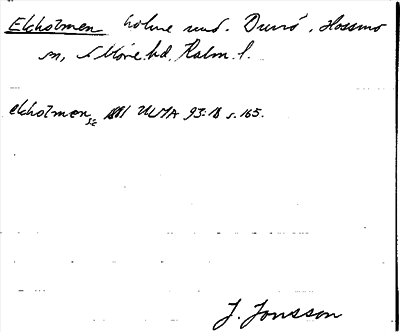 Ekholmen holme und. Dunö, Hossmo
sn, N Möre hd, Kalm. l.
ekholmen 1881 ULMA 93:18 s. 165.
J. Jonsson